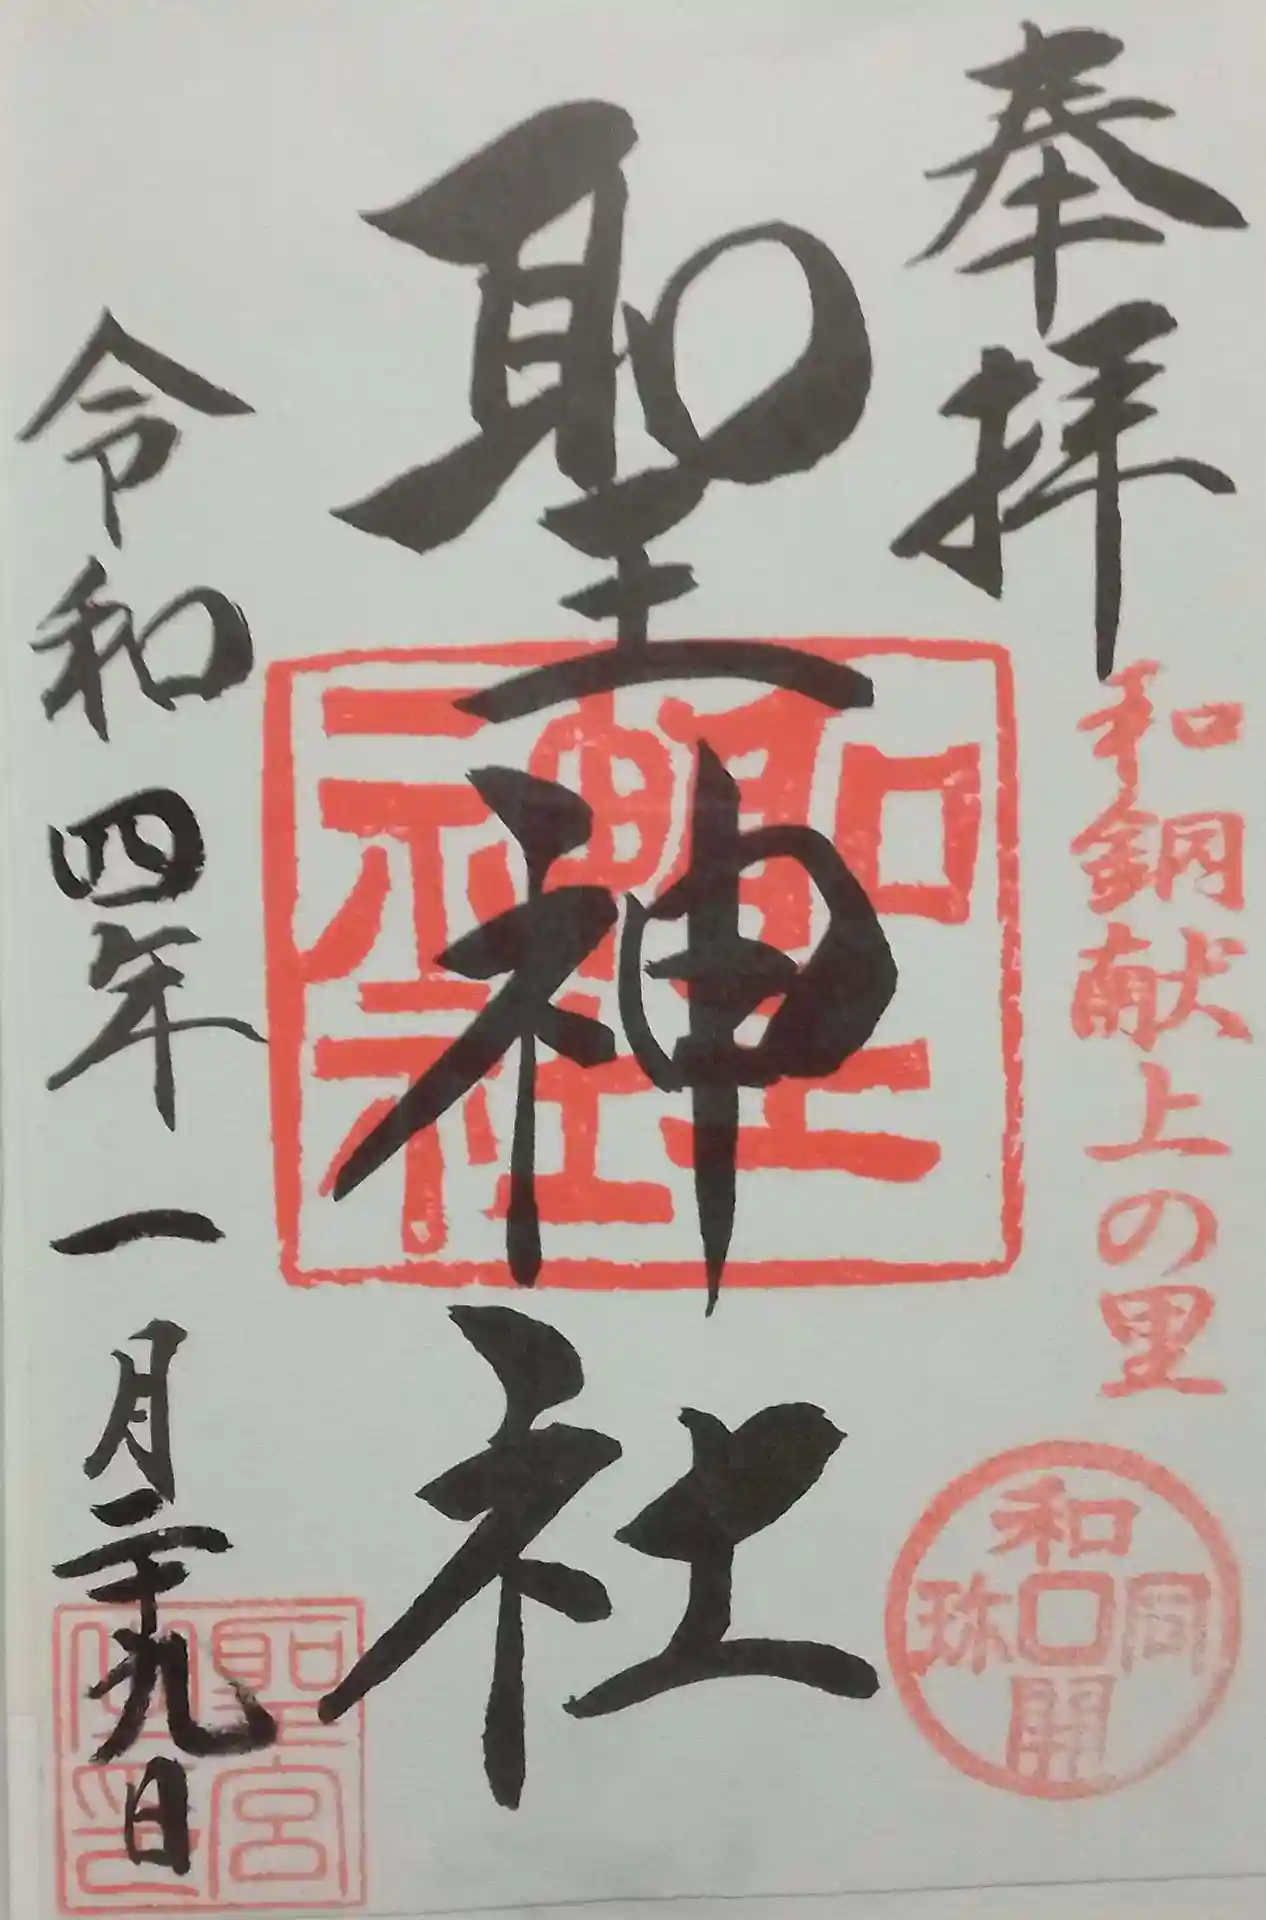 奉拝
和銅献上の里
和同開珎
聖神社
聖神社
令和四年一月二十九日
聖宮